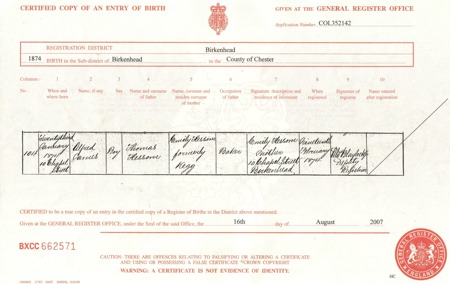 CERTIFIED COPY OF AN ENTRY OF BIRTH
GIVEN AT THE GENERAL REGISTER OFFICE
Application Number COL352142
REGISTRATION DISTRICT Birkenhead
1874 BIRTH in the Sub-district of Birkenhead in the County of Chester
Columns:- 1 2 3 4 5 6 7 8 9 10
No. When and where born Name, if any Sex Name and surname of father Name, surname and maiden surname of mother Occupation of father Signature, description and residence of informant When registered Signature of registrar Name entered after registration
Twenty third January 1874 10 Chapel Street
Alfred James
Boy
Thomas
Emily
formerly
Baker
Emily
Mother
10 Chapel Street
Birkenhead
1874
Deputy Registrar
CERTIFIED to be a true copy of an entry in the certified copy of a Register of Births in the District above mentioned.
Given at the GENERAL REGISTER OFFICE, under the Seal of the said Office, the 16th day of August 2007
BXCC 662571
CAUTION: THERE ARE OFFENCES RELATING TO FALSIFYING OR ALTERING A CERTIFICATE
AND USING OR POSSESSING A FALSE CERTIFICATE ©CROWN COPYRIGHT
WARNING: A CERTIFICATE IS NOT EVIDENCE OF IDENTITY.
GENERAL REGISTER OFFICE
ENGLAND